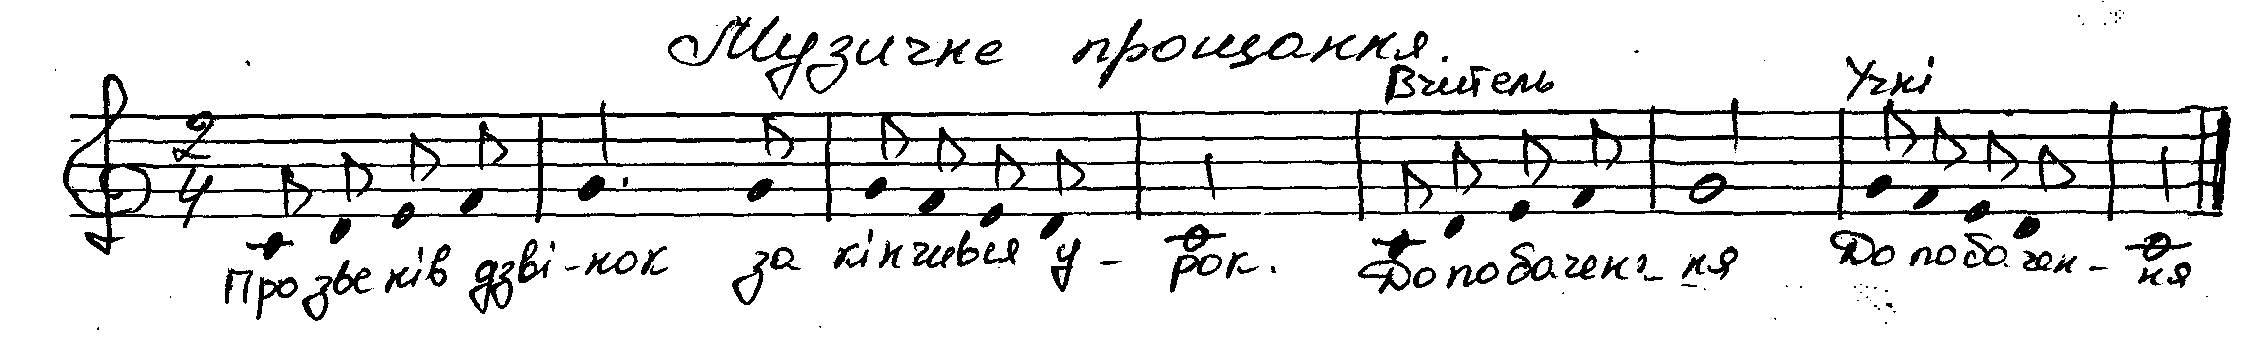 Музичне прощання.
Вчитель Учні
2
4
Прозве нів дзві-нок за кінчився у - рок. До побаченн- ня До побачен- ня